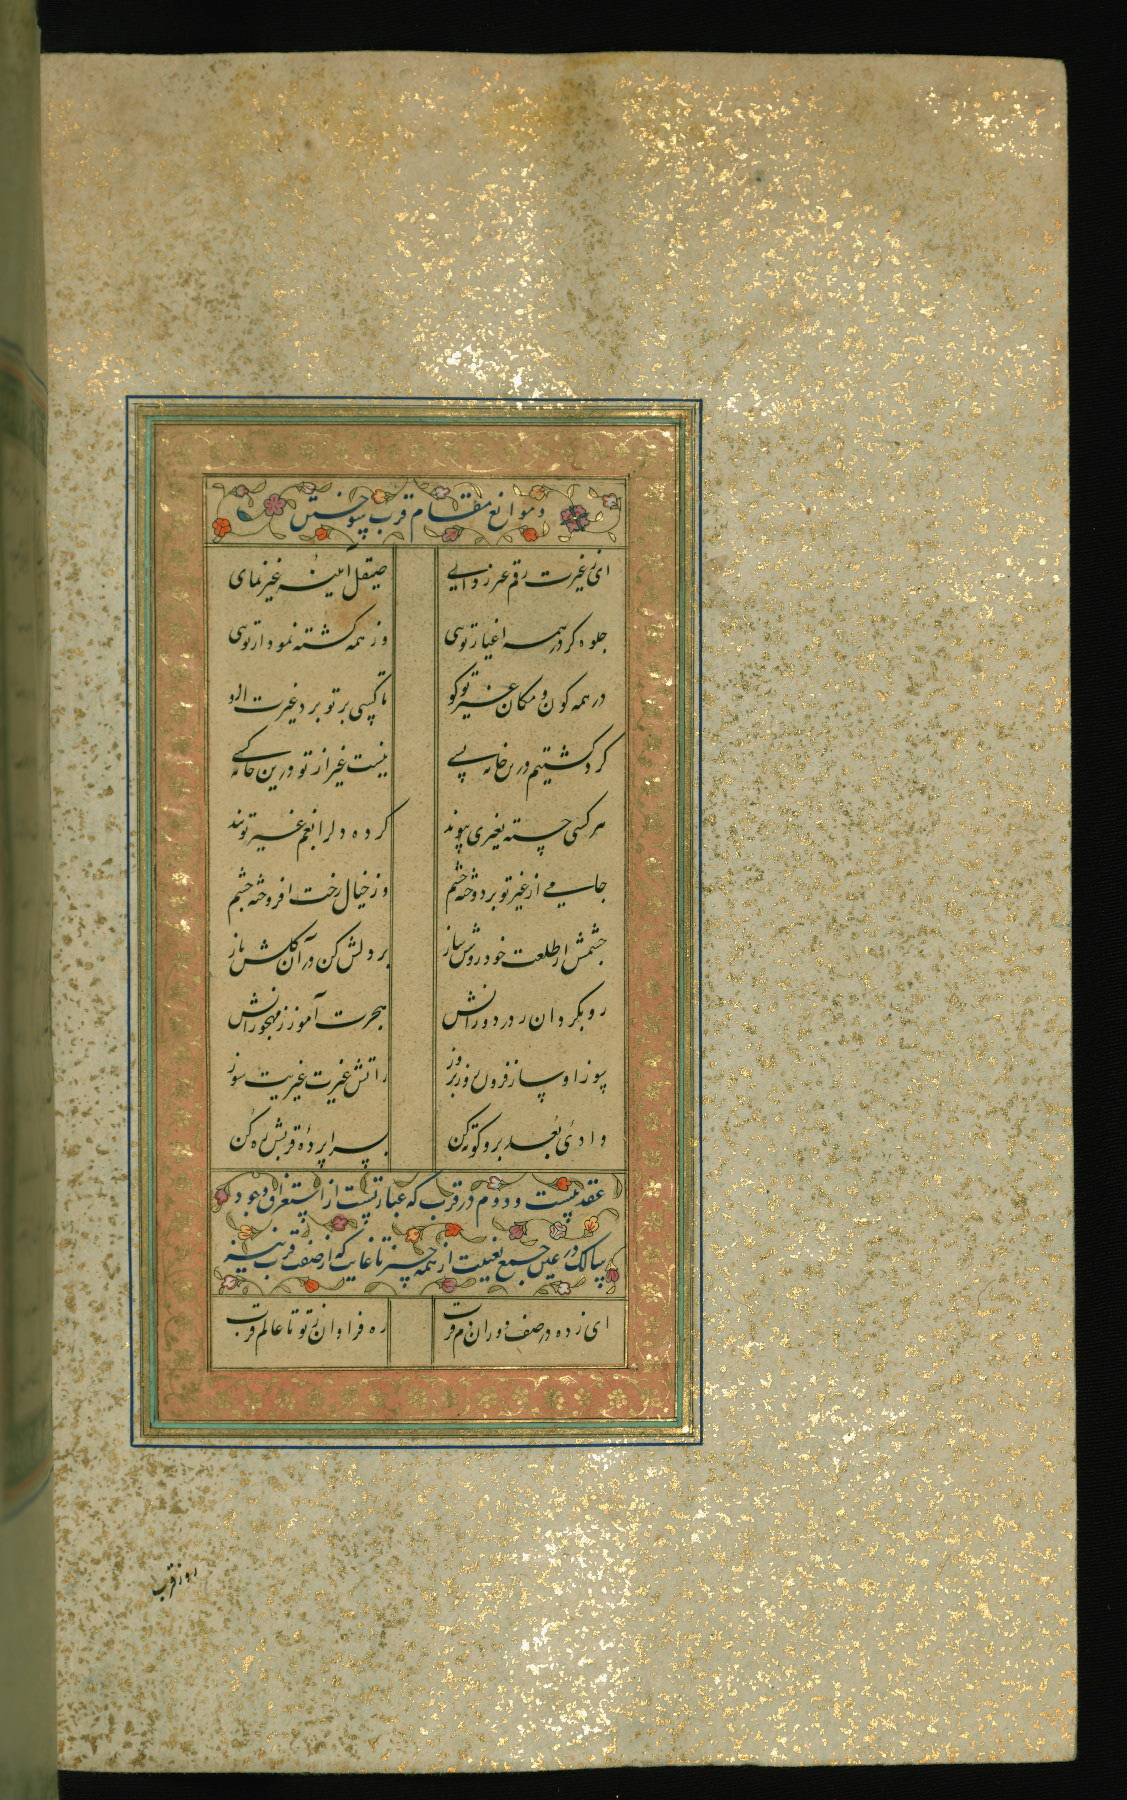 و موانع مقام قرب سوختن
ای ز غیرت رقم غیر زدایی صیقل آینه غیر نمای
جلوه گر در همه اغیار تویی وز همه گشته نمودار تویی
در همه کون و مکان غیر تو کو تا کسی بر تو برد غیرت ازو
گرد گشتیم درین خانه بسی نیست غیر از تو درین خانه کسی
هر کسی جسته بغیری پیوند کرده دل را بغم غیر تو بند
جامی از غیر تو بردوخته چشم وز خیال رخت افروخته چشم
چشمش از طلعت خود روشن ساز بر دلش کن در آن گلشن باز
رو بگردان ز در دورانش هجرت آموز ز مهجورانش
سوز او ساز فزون روز بروز ز آتش غیرت غیریت سوز
وادئ بعد برو کوته کن بسراپردهٔ قربش ره کن
عقد بیست و دوم در قرب که عبارتیست از استغراق وجود
سالک در عین جمع بغیبت از همه چیز تا غایت که از صفت قرب نیز
ای زده در صف دوران دم قرب ره فراوان ز تو تا عالم قرب
روز قرب